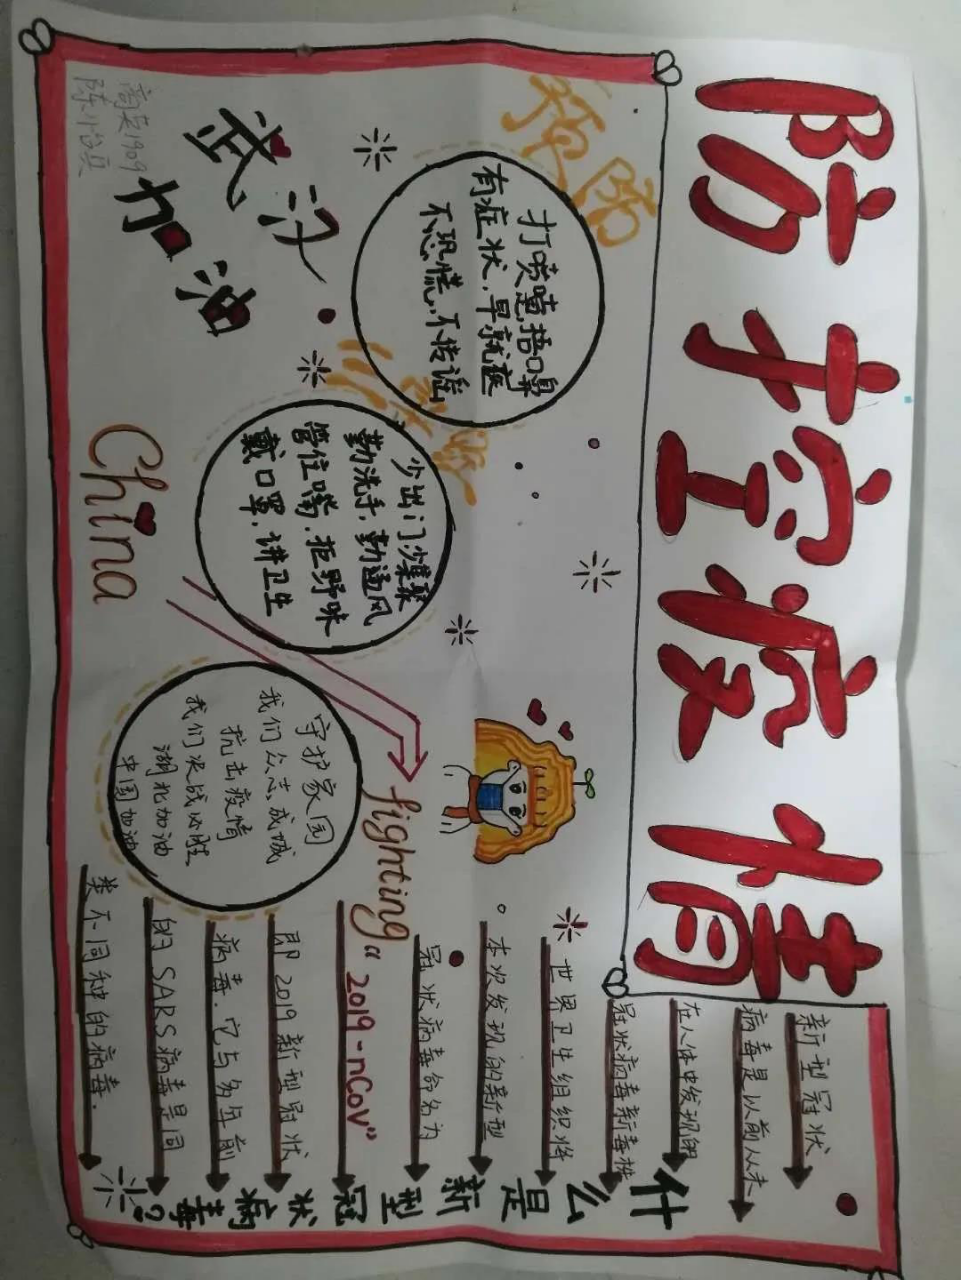 防控疫情
预防
打喷嚏捂口鼻
有症状,早就医
不恐慌,不传谣
武汉
加油
1909
少出门,少聚
勤洗手,勤通风
管住嘴,拒野味
戴口罩,讲卫生
China
fighting
守护家园
我们众志成城
抗击疫情
我们决战必胜
湖北加油
中国加油
什么是新型冠状病毒?
新型冠状
病毒是以前从未
在人体中发现的
冠状病毒新毒株
世界卫生组织将
本次发现的新型
冠状病毒命名为
“2019-nCoV”
即2019新型冠状
病毒.它与多年前
的SARS病毒是同
类不同种的病毒.